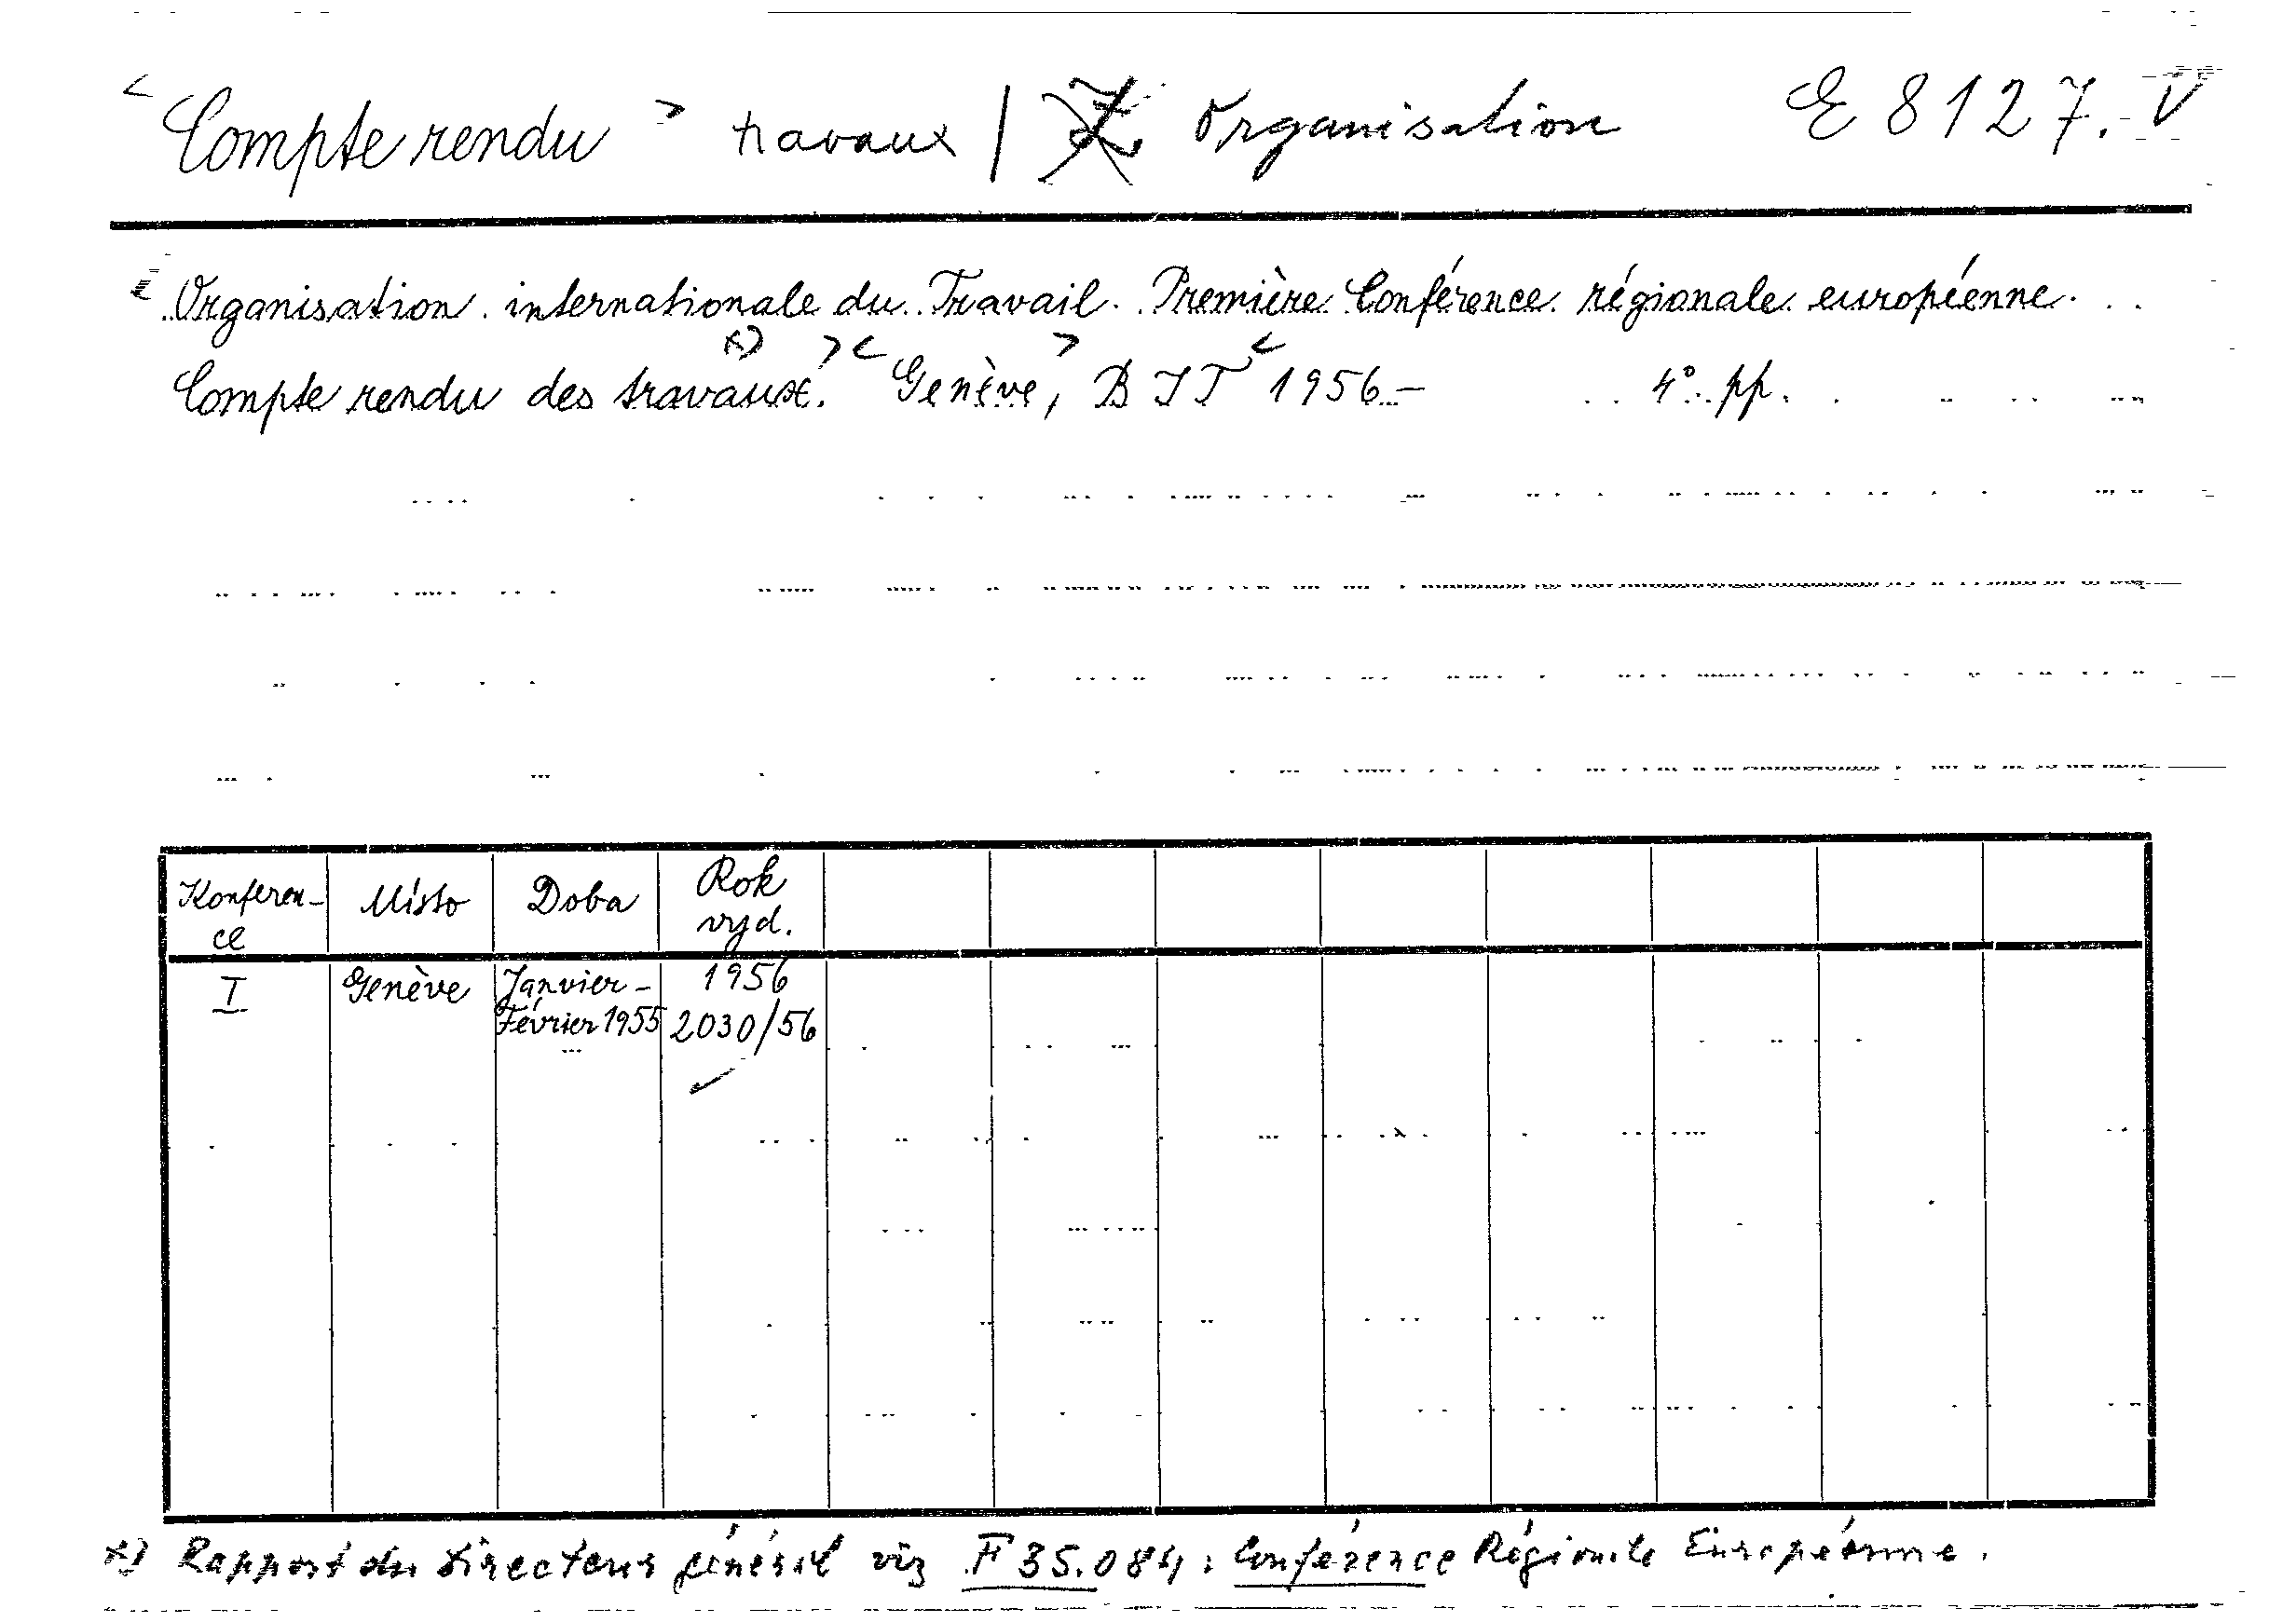 < Compte rendu > travaux / Organisation E 8127.-V
Organisation internationale du Travail. Première Conférence régionale européenne.
x) > < > <
Compte rendu des travaux. Genève, BIT 1956- 4° pp.
Konferen- Místo Doba Rok
ce vyd.
I Genève Janvier- 1956
Février 1955 2030/56
x) Rapport du Directeur général viz F 35.084: Conférence Régionale Européenne.